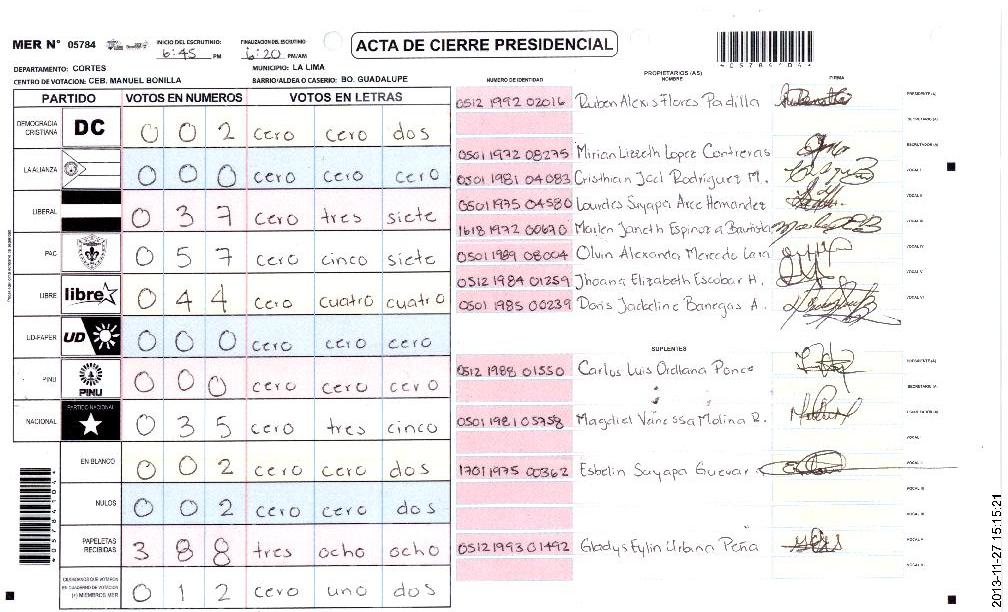 MER N° 05784
INICIO DEL ESCRUTINIO: 6:45 PM
FINALIZACION DEL ESCRUTINIO 6:20 PM/AM
ACTA DE CIERRE PRESIDENCIAL
40578414104
DEPARTAMENTO: CORTES
MUNICIPIO: LA LIMA
CENTRO DE VOTACION: CEB. MANUEL BONILLA
BARRIO/ALDEA O CASERIO: BO. GUADALUPE
PARTIDO VOTOS EN NUMEROS VOTOS EN LETRAS
DEMOCRACIA CRISTIANA DC 0 0 2 cero cero dos
LA ALIANZA 0 0 0 cero cero cero
LIBERAL 0 3 7 cero tres siete
PAC 0 5 7 cero cinco siete
LIBRE libre 0 4 4 cero cuatro cuatro
UD-FAPER UD 0 0 0 cero cero cero
PINU PINU 0 0 0 cero cero cero
NACIONAL PARTIDO NACIONAL 0 3 5 cero tres cinco
EN BLANCO 0 0 2 cero cero dos
NULOS 0 0 2 cero cero dos
PAPELETAS RECIBIDAS 3 8 8 tres ocho ocho
CIUDADANOS QUE VOTARON EN CUADERNO DE VOTACION (+) MIEMBROS MER 0 1 2 cero uno dos
NUMERO DE IDENTIDAD
PROPIETARIOS (AS)
NOMBRE
FIRMA
0512 1992 02016 Ruben Alexis Flores Padilla PRESIDENTE (A)
SECRETARIO (A)
0501 1972 08275 Mirian Lizzeth Lopez Contreras ESCRUTADOR (A)
0501 1981 04083 Cristhian Joel Rodriguez M. VOCAL I
0501 1975 04580 Lourdes Suyapa Arce Hernandez VOCAL II
1618 1972 00670 Maylen Janeth Espinoza Bautista VOCAL III
0501 1989 08004 Olvin Alexander Mercedo Lara VOCAL IV
0512 1984 01259 Jhoana Elizabeth Escobar H. VOCAL V
0501 1985 00239 Doris Jackeline Banegas A. VOCAL VI
SUPLENTES
0512 1988 01550 Carlos Luis Orellana Ponce PRESIDENTE (A)
SECRETARIO (A)
0501 1981 05758 Magdiel Vanessa Molina R. ESCRUTADOR (A)
VOCAL I
1701 1975 00362 Esbelin Suyapa Guevar VOCAL II
VOCAL III
VOCAL IV
0512 1993 01492 Gladys Eylin Urbana Peña VOCAL V
VOCAL VI
2013-11-27 15:15:21